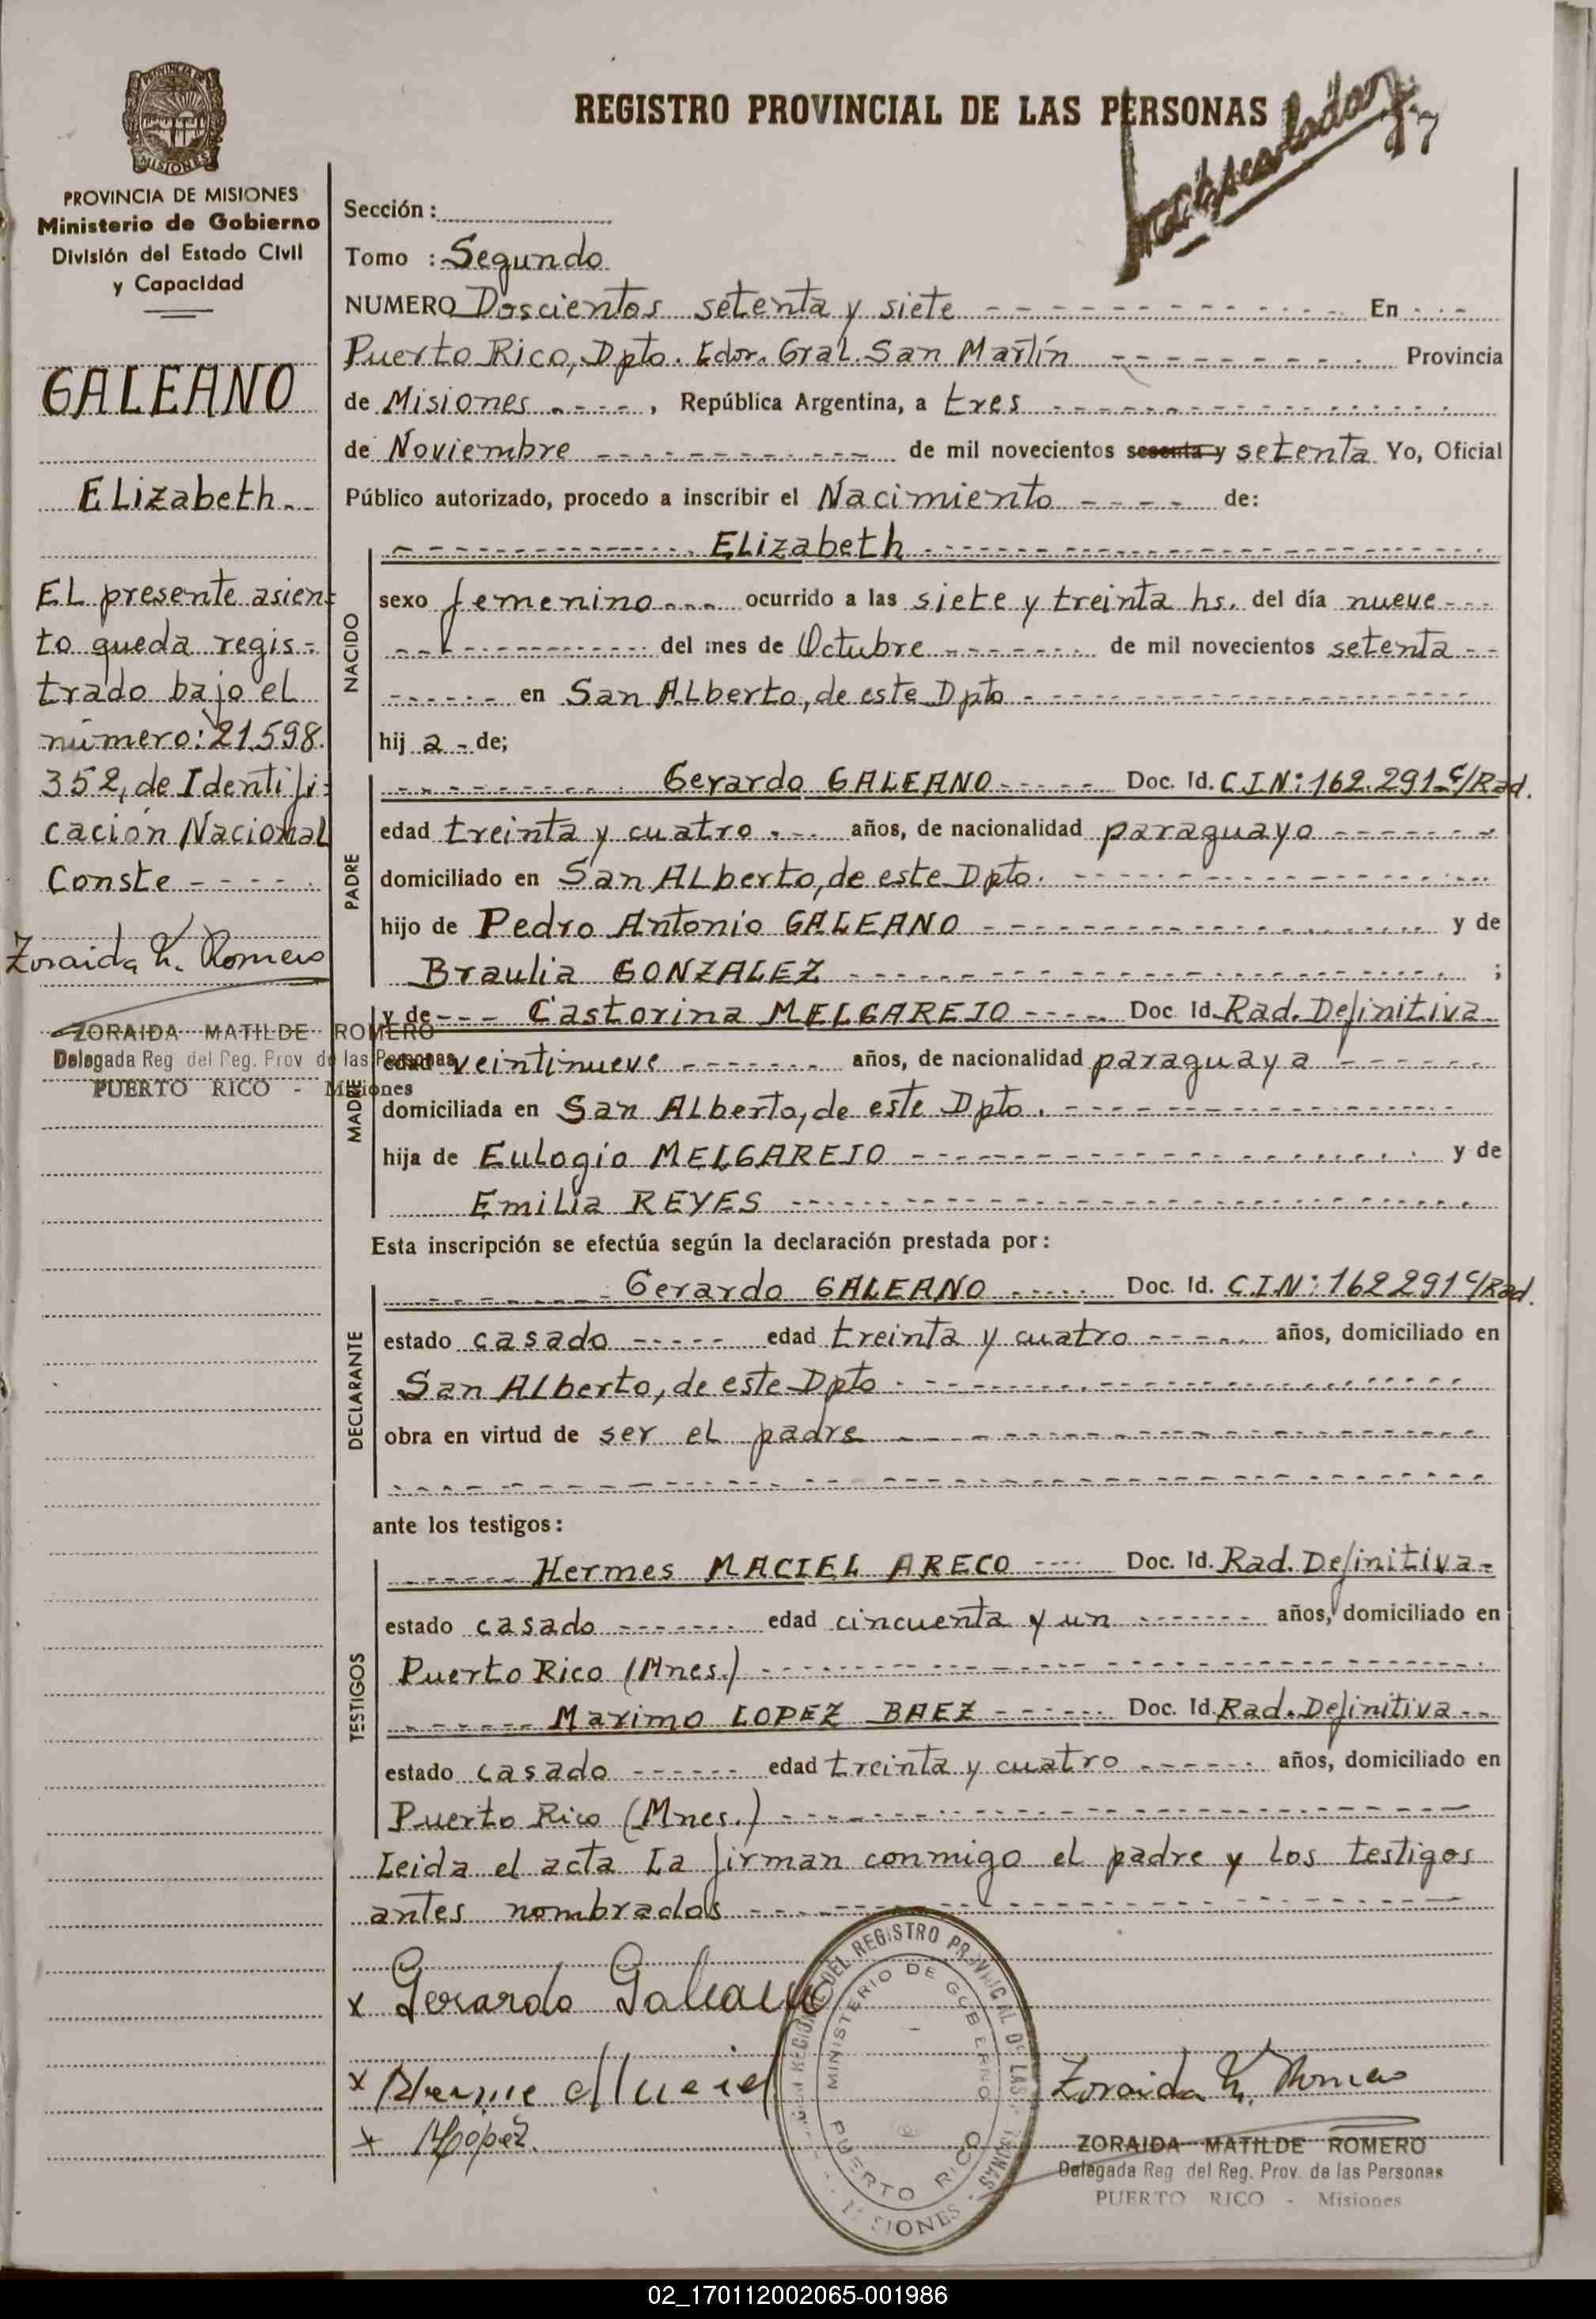 REGISTRO PROVINCIAL DE LAS PERSONAS
PROVINCIA DE
MISIONES
PROVINCIA DE MISIONES
Ministerio de Gobierno
División del Estado Civil
y Capacidad
GALEANO
ELizabeth.
EL presente asien-
to queda regis-
trado bajo el
número: 21.598.
352, de Identifi-
cación Nacional
Conste
Zoraida M. Romero
ZORAIDA MATILDE ROMERO
Delegada Reg del Reg. Prov de las Personas
PUERTO RICO - Misiones
Sección :
Tomo : Segundo
NUMERO Doscientos setenta y siete En
Puerto Rico, Dpto. Ldor. Gral. San Martín Provincia
de Misiones , República Argentina, a tres
de Noviembre de mil novecientos sesenta y setenta Yo, Oficial
Público autorizado, procedo a inscribir el Nacimiento de:
ELizabeth
NACIDO
sexo femenino ocurrido a las siete y treinta hs. del día nueve
del mes de Octubre de mil novecientos setenta
en San ALberto, de este Dpto
hij a de;
PADRE
Gerardo GALEANO Doc. Id. C.I.N: 162.291 c/Rad.
edad treinta y cuatro años, de nacionalidad paraguayo
domiciliado en San ALberto, de este Dpto.
hijo de Pedro Antonio GALEANO y de
Braulia GONZALEZ ;
MADRE
y de Castorina MELGAREJO Doc. Id. Rad. Definitiva
edad veintinueve años, de nacionalidad paraguaya
domiciliada en San ALberto, de este Dpto.
hija de Eulogio MELGAREJO y de
EmiLia REYES
Esta inscripción se efectúa según la declaración prestada por:
DECLARANTE
Gerardo GALEANO Doc. Id. C.I.N: 162291 c/Rad.
estado casado edad treinta y cuatro años, domiciliado en
San ALberto, de este Dpto
obra en virtud de ser eL padre
ante los testigos:
TESTIGOS
Hermes MACIEL ARECO Doc. Id. Rad. Definitiva
estado casado edad cincuenta y un años, domiciliado en
Puerto Rico (Mnes.)
Maximo LOPEZ BAEZ Doc. Id. Rad. Definitiva
estado casado edad treinta y cuatro años, domiciliado en
Puerto Rico (Mnes.)
Leida el acta La firman conmigo el padre y Los testigos
antes nombrados
x Gerardo Galeano
x
x MLopez
REGISTRO PROVINCIAL DE LAS PERSONAS
MINISTERIO DE GOBIERNO
PUERTO RICO
MISIONES
Zoraida M. Romero
ZORAIDA MATILDE ROMERO
Delegada Reg del Reg. Prov. de las Personas
PUERTO RICO - Misiones
02_170112002065-001986